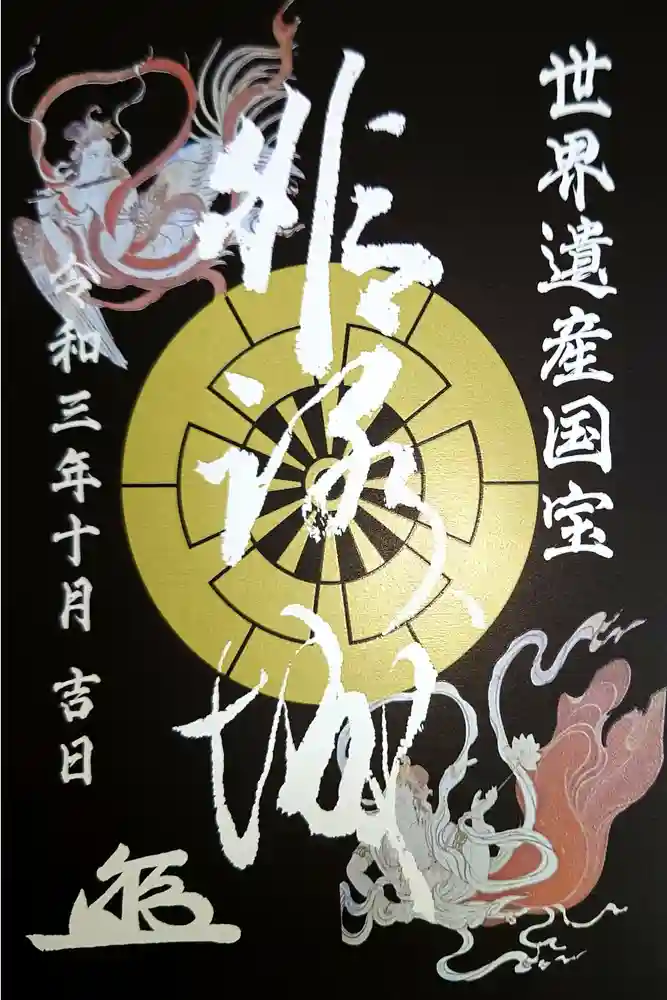 世界遺産国宝
姫路城
令和三年十月 吉日